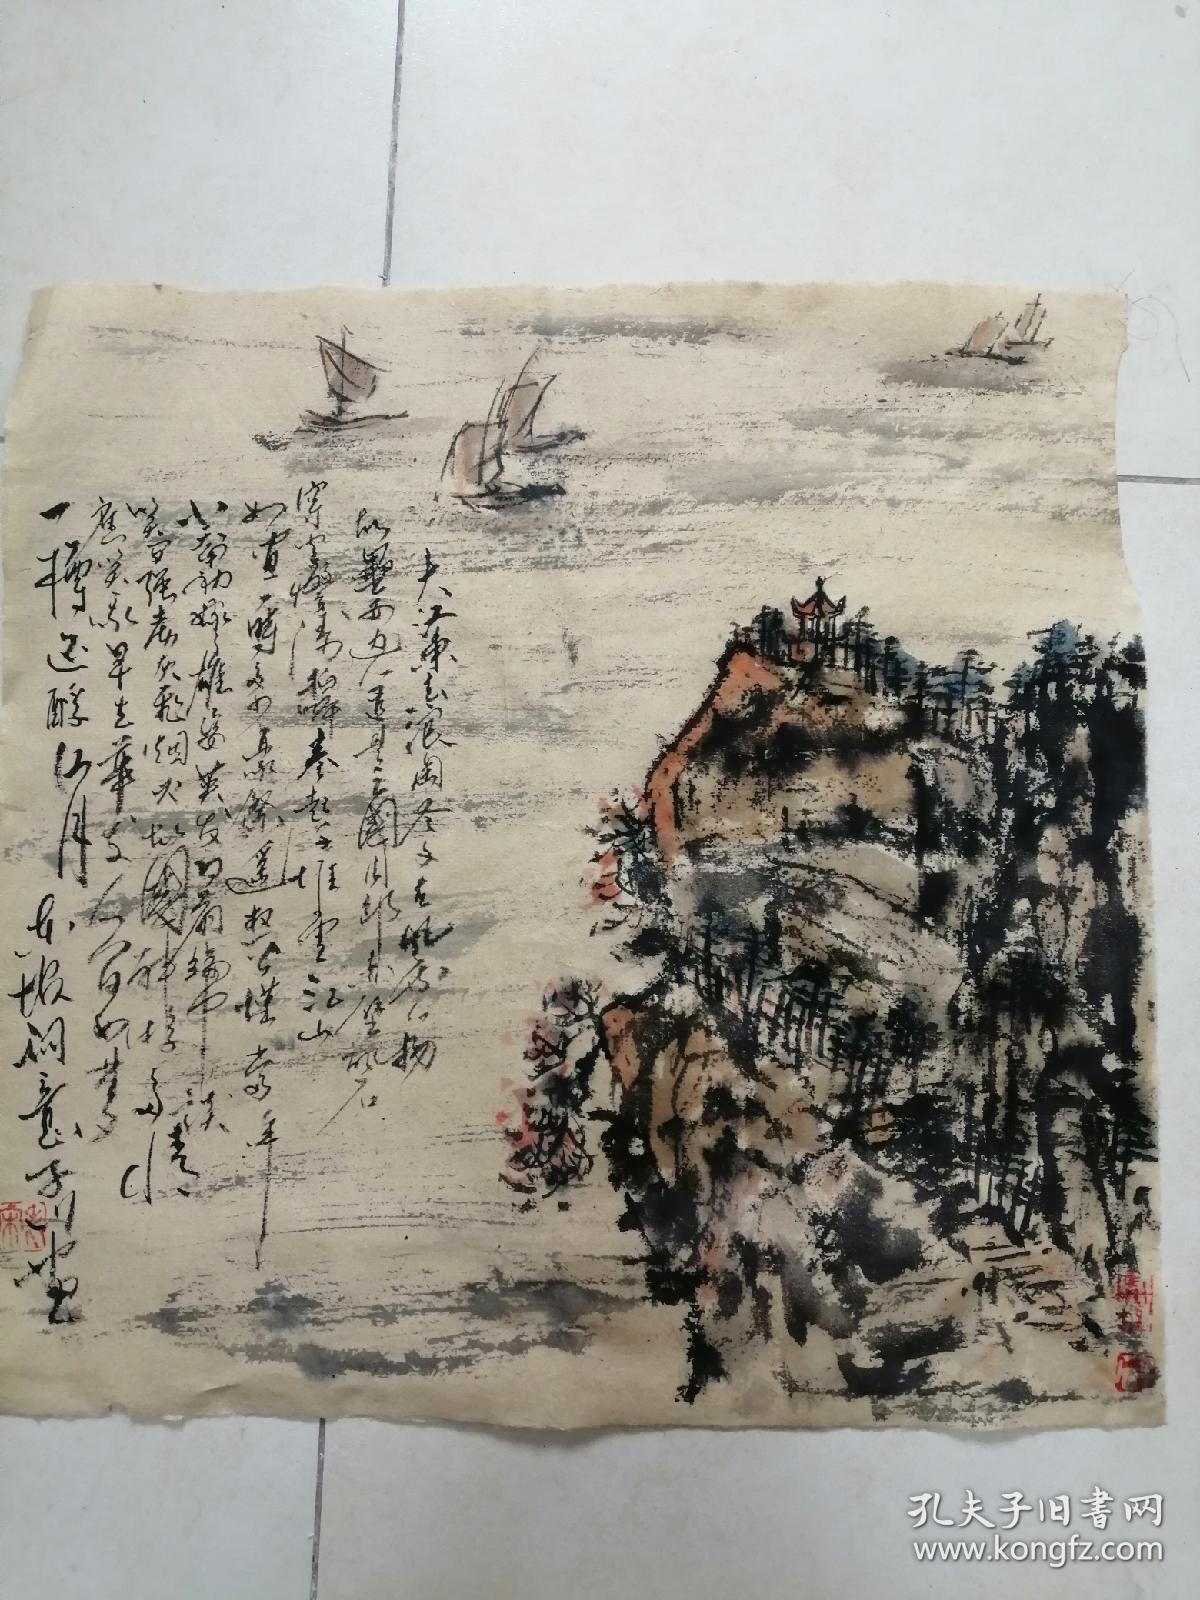 大江东去浪淘尽千古风流人物
故垒西边人道是三国周郎赤壁乱石
穿空惊涛拍岸卷起千堆雪江山
如画一时多少豪杰遥想公瑾当年
小乔初嫁了雄姿英发羽扇纶巾谈
笑间强虏灰飞烟灭故国神游多情
应笑我早生华发人间如梦
一樽还酹江月 东坡词意
孔夫子旧书网
www.kongfz.com